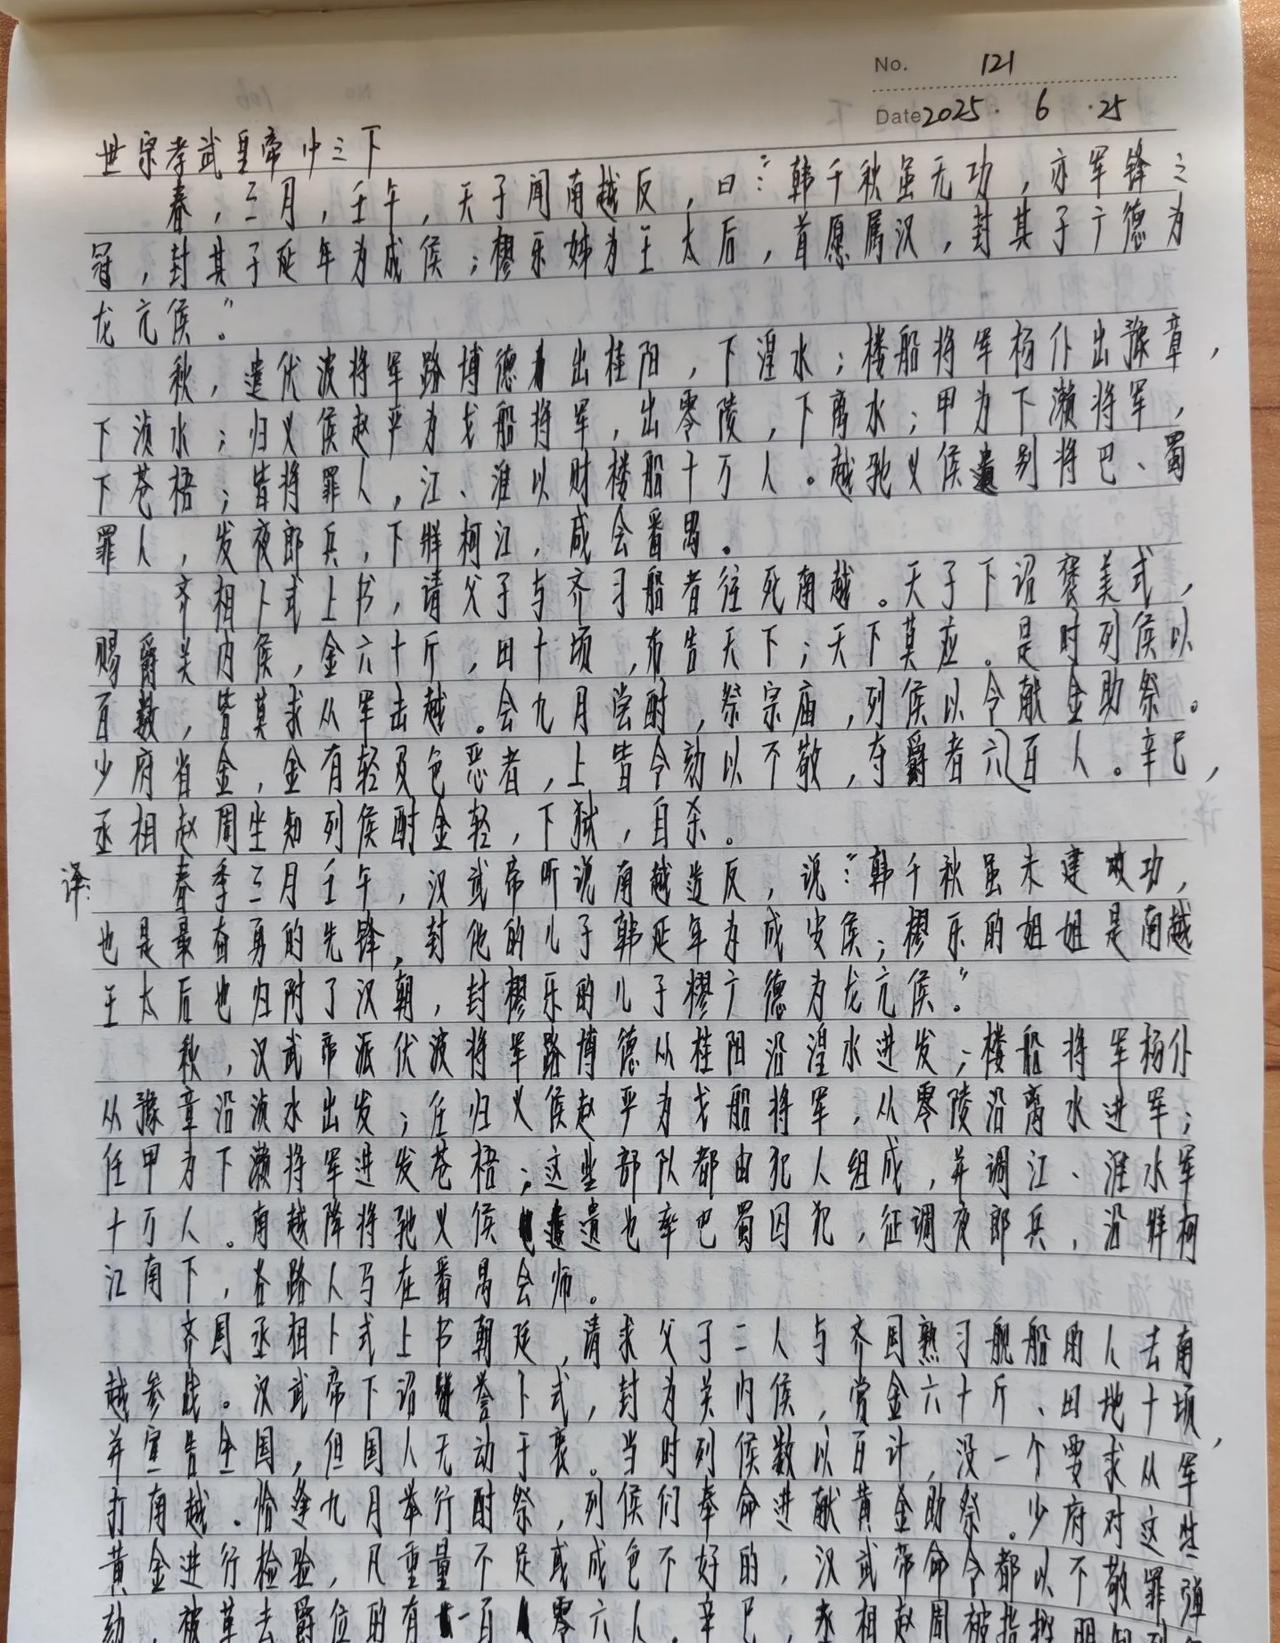 No. 121
Date 2025. 6 .25
世宗孝武皇帝中之下
春,三月,壬午,天子闻南越反,曰:“韩千秋虽无功,亦军锋之
冠,封其子延年为成侯;樛乐姊为王太后,首愿属汉,封其子广德为
龙亢侯。”
秋,遣伏波将军路博德出桂阳,下湟水;楼船将军杨仆出豫章,
下浈水;归义侯赵严为戈船将军,出零陵,下离水;甲为下濑将军,
下苍梧;皆将罪人,江、淮以财楼船十万人。越驰义侯遗别将巴、蜀
罪人,发夜郎兵,下牂柯江,咸会番禺。
齐相卜式上书,请父子与齐习船者往死南越。天子下诏褒美式,
赐爵关内侯,金六十斤,田十顷,布告天下;天下莫应。是时列侯以
百数,皆莫求从军击越。会九月尝酎,祭宗庙,列侯以令献金助祭。
少府省金,金有轻及色恶者,上皆令劾以不敬,夺爵者六百人。辛巳,
丞相赵周坐知列侯酎金轻,下狱,自杀。
译: 春季三月壬午,汉武帝听说南越造反,说:“韩千秋虽未建功,
也是最奋勇的先锋,封他的儿子韩延年为成安侯;樛乐的姐姐是南越
王太后也归附了汉朝,封樛乐的儿子樛广德为龙亢侯。”
秋,汉武帝派伏波将军路博德从桂阳沿湟水进发;楼船将军杨仆
从豫章沿浈水出发;任归义侯赵严为戈船将军,从零陵沿离水进军;
任甲为下濑将军进发苍梧;这些部队都由犯人组成,并调江、淮水军
十万人。南越降将驰义侯遗也率巴蜀囚犯,征调夜郎兵,沿牂柯
江南下,各路人马在番禺会师。
齐国丞相卜式上书朝廷,请求父子二人与齐国熟习舰船的人去南
越参战。汉武帝下诏赞誉卜式,封为关内侯,赏金六十斤、田地十顷,
并宣告全国,但国人无动于衷。当时列侯数以百计,没一个要求从军
打南越。恰逢九月举行酎祭,列侯们奉命进献黄金助祭。少府对这些
黄金进行检验,凡重量不足或成色不好的,汉武帝命令都以不敬罪弹
劾,被革去爵位的有一百零六人。辛巳,丞相赵周被指控明知列